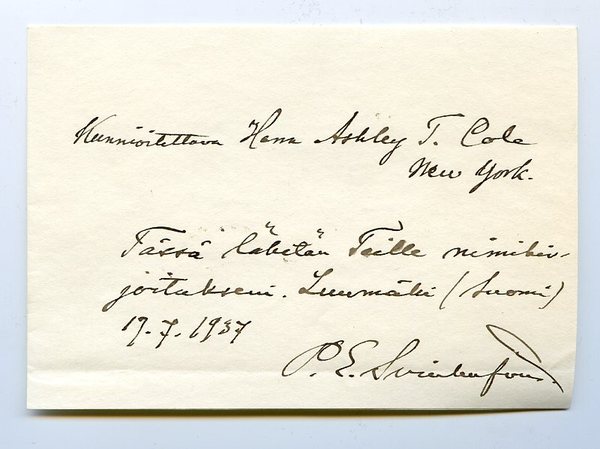 Kunnioitettava Herra Ashley T. Cole
New York.
Tässä lähetän Teille nimikir-
joitukseni. Luumäki (Suomi)
19.7.1937
P. E. Svinhufvud.